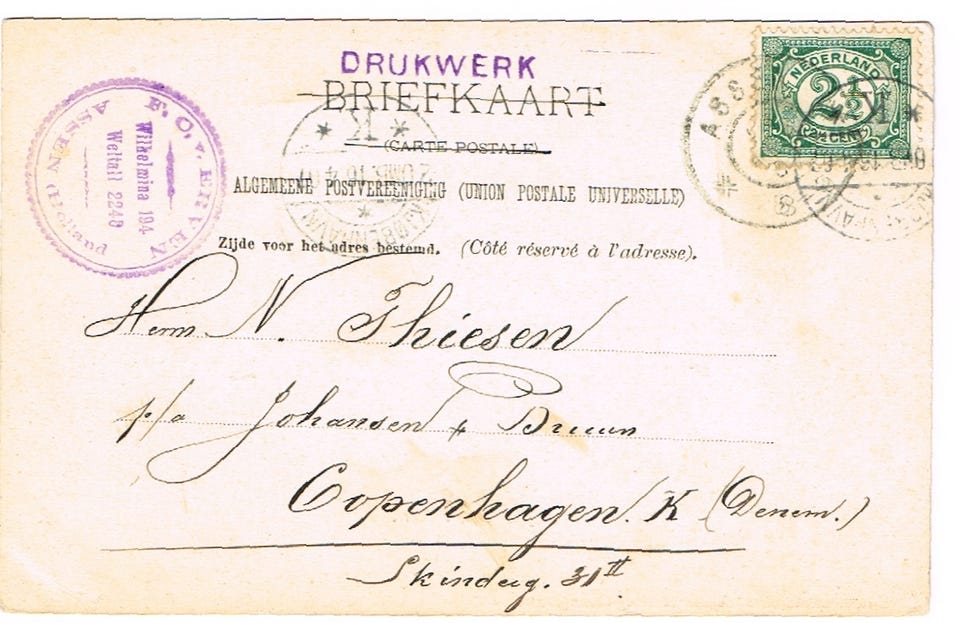 DRUKWERK
BRIEFKAART
(CARTE POSTALE)
ALGEMEENE POSTVEREENIGING (UNION POSTALE UNIVERSELLE)
Zijde voor het adres bestemd. (Côté réservé à l'adresse).
F. O. v. ERVEN
Wilhelmina 194
Weltall 2240
ASSEN Holland
NEDERLAND
2½
CENT
ASS
K
KJØBENHAVN
K
Herrn N. Thiesen
p/a Johansen & Bruun
Copenhagen. K (Denem.)
Skindeg. 31 II